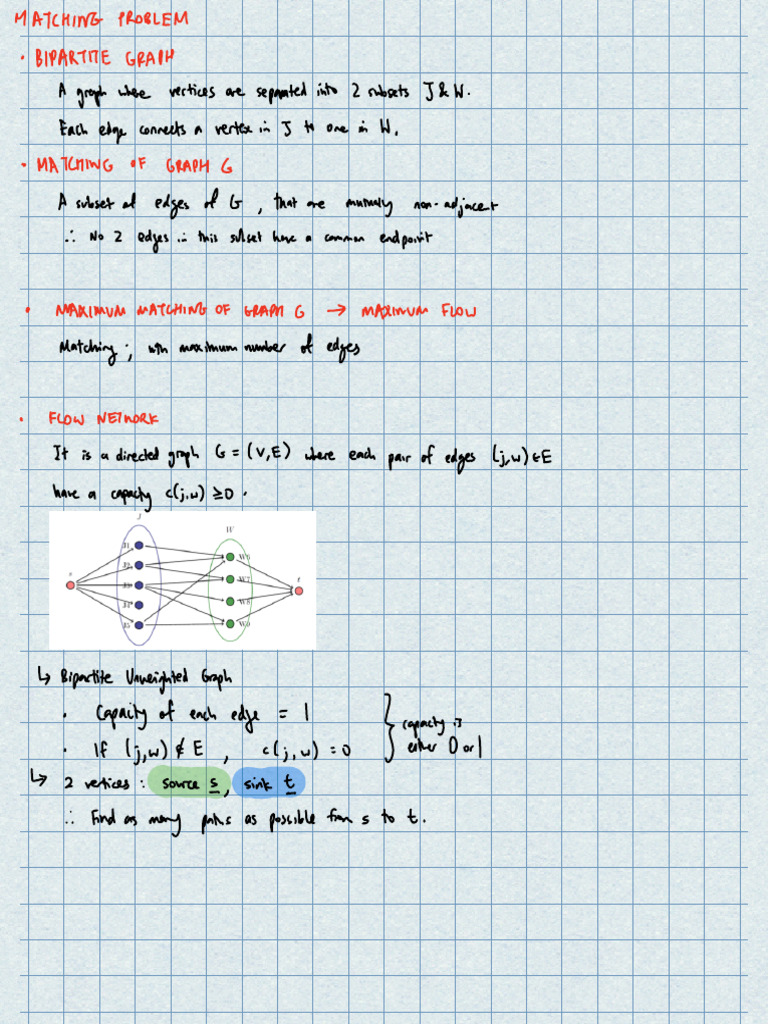 MATCHING PROBLEM
• BIPARTITE GRAPH
A graph where vertices are separated into 2 subsets J & W.
Each edge connects a vertex in J to one in W.
• MATCHING OF GRAPH G
A subset of edges of G, that are mutually non-adjacent
∴ No 2 edges in this subset have a common endpoint
• MAXIMUM MATCHING OF GRAPH G → MAXIMUM FLOW
Matching; with maximum number of edges
• FLOW NETWORK
It is a directed graph G = (V,E) where each pair of edges (j,w) ∈ E
have a capacity c(j,w) ≥ 0.
J
W
s
t
J1
J2
J3
J4
J5
W6
W7
W8
W9
↳ Bipartite Unweighted Graph
• Capacity of each edge = 1
• If (j,w) ∉ E, c(j,w) = 0
} capacity is
either 0 or 1
↳ 2 vertices: source s, sink t
∴ Find as many paths as possible from s to t.